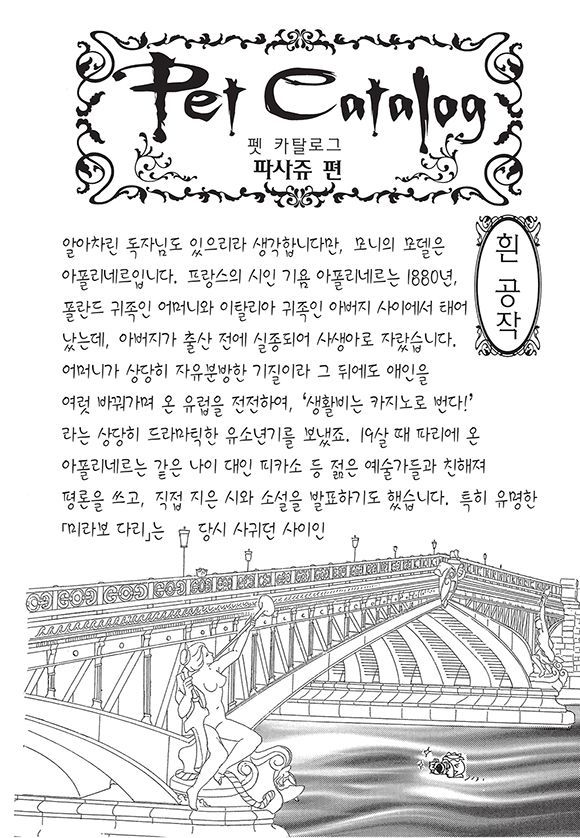 Pet Catalog
펫 카탈로그
파사쥬 편
흰 공작
알아차린 독자님도 있으리라 생각합니다만, 꼬니의 모델은
아폴리네르입니다. 프랑스의 시인 기욤 아폴리네르는 1880년,
폴란드 귀족인 어머니와 이탈리아 귀족인 아버지 사이에서 태어
났는데, 아버지가 출산 전에 실종되어 사생아로 자랐습니다.
어머니가 상당히 자유분방한 기질이라 그 뒤에도 애인을
여럿 바꿔가며 온 유럽을 전전하여, ‘생활비는 카지노로 번다!’
라는 상당히 드라마틱한 유소년기를 보냈죠. 19살 때 파리에 온
아폴리네르는 같은 나이 대인 피카소 등 젊은 예술가들과 친해져
평론을 쓰고, 직접 지은 시와 소설을 발표하기도 했습니다. 특히 유명한
「미라보 다리」는 당시 사귀던 사이인